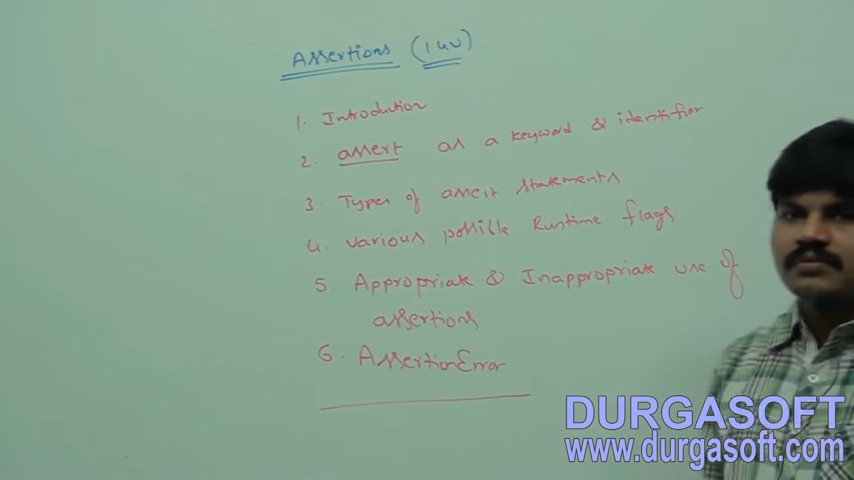 Assertions (1.4V)
1. Introduction
2. assert as a keyword & identifier
3. Types of assert statements
4. various possible Runtime flags
5. Appropriate & Inappropriate use of
assertions
6. AssertionError
DURGASOFT
www.durgasoft.com